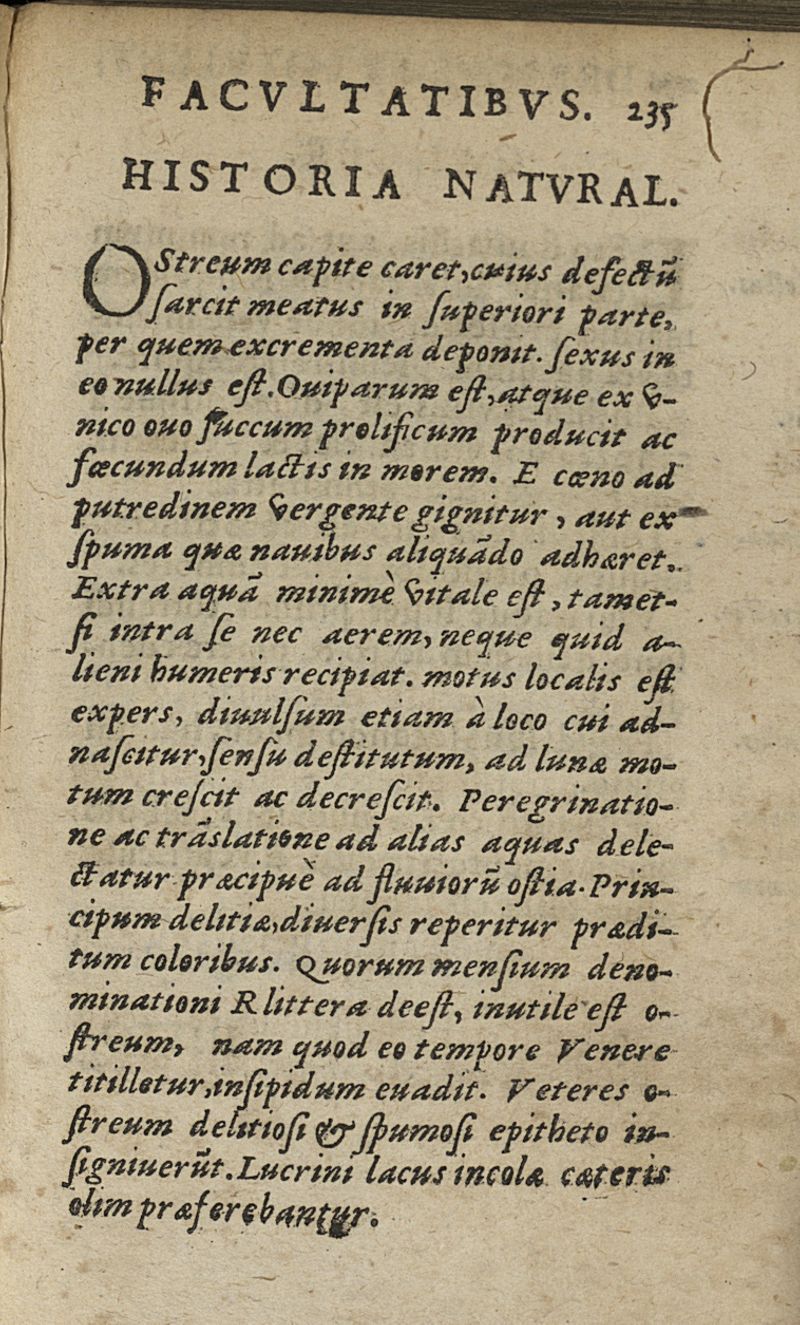 FACVLTATIBVS. 235
HISTORIA NATVRAL.
OStreum capite caret, cuius defectũ
ſarcit meatus in ſuperiori parte,
per quem excrementa deponit. ſexus in
eo nullus eſt. Ouiparum eſt, atque ex v-
nico ouo ſuccum prolificum producit ac
fœcundum lactis in morem. E cœno ad
putredinem vergente gignitur, aut ex
ſpuma quæ nauibus aliquãdo adhæret.
Extra aquã minimè vitale eſt, tamet-
ſi intra ſe nec aerem, neque quid a-
lieni humeris recipiat. motus localis eſt
expers, diuulſum etiam à loco cui ad-
naſcitur, ſenſu deſtitutum, ad lunæ mo-
tum creſcit ac decreſcit. Peregrinatio-
ne ac trãslatione ad alias aquas dele-
ctatur præcipuè ad fluuiorũ oſtia. Prin-
cipum delitiæ, diuerſis reperitur prædi-
tum coloribus. Quorum menſium deno-
minationi R littera deeſt, inutile eſt o-
ſtreum, nam quod eo tempore Venere
titilletur, inſipidum euadit. Veteres o-
ſtreum delitioſi & ſpumoſi epitheto in-
ſigniuerũt. Lucrini lacus incolæ cæteris
olim præferebantur.